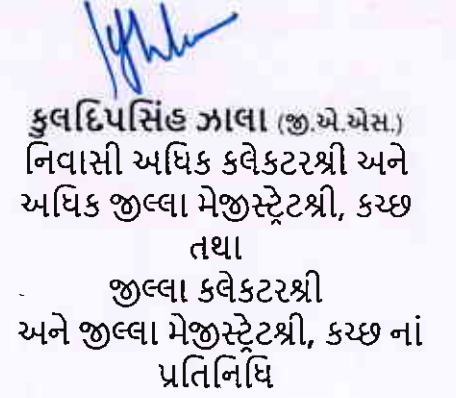 કુલદિપસિંહ ઝાલા (જી.એ.એસ.)
નિવાસી અધિક કલેકટરશ્રી અને
અધિક જીલ્લા મેજીસ્ટ્રેટશ્રી, કચ્છ
તથા
જીલ્લા કલેકટરશ્રી
અને જીલ્લા મેજીસ્ટ્રેટશ્રી, કચ્છ નાં
પ્રતિનિધિ